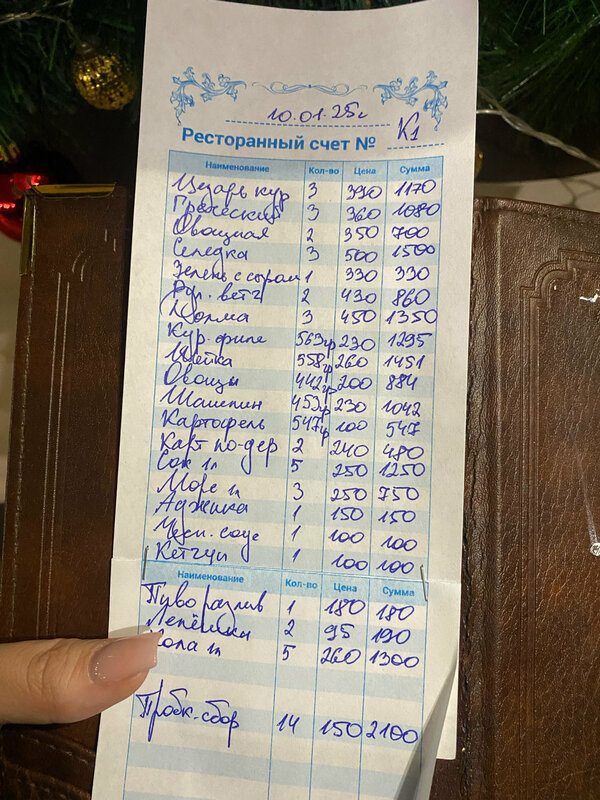 10.01.25г
Ресторанный счет № К1
Наименование Кол-во Цена Сумма
Цезарь кур 3 390 1170
Греческий 3 360 1080
Овощная 2 350 700
Селедка 3 500 1500
Зелень с сыром 1 330 330
Рул. ветч 2 430 860
Долма 3 450 1350
Кур. филе 563гр 230 1295
Шейка 558гр 260 1451
Овощы 442гр 200 884
Шампин 453гр 230 1042
Картофель 547гр 100 547
Карт по-дер 2 240 480
Сок 1л 5 250 1250
Морс 1л 3 250 750
Аджика 1 150 150
Чесн. соус 1 100 100
Кетчуп 1 100 100
Наименование Кол-во Цена Сумма
Пиво разлив 1 180 180
Лепёшки 2 95 190
Кола 1л 5 260 1300
Пробк. сбор 14 150 2100